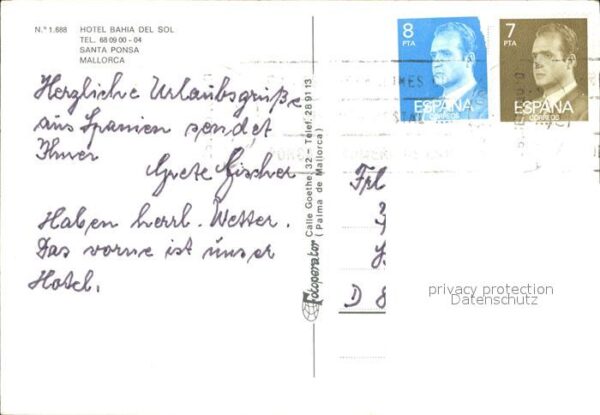 N.º 1.688 HOTEL BAHIA DEL SOL
TEL. 68 09 00 – 04
SANTA PONSA
MALLORCA
Herzliche Urlaubsgrüße
aus Spanien sendet
Ihnen
Grete Fischer
Haben herrl. Wetter.
Das vorne ist unser
Hotel.
Fotoperator
Calle Goethe, 32 – Telef. 28 91 13
( Palma de Mallorca )
8
PTA
ESPAÑA
CORREOS
7
PTA
ESPAÑA
CORREOS
D 8
privacy protection
Datenschutz